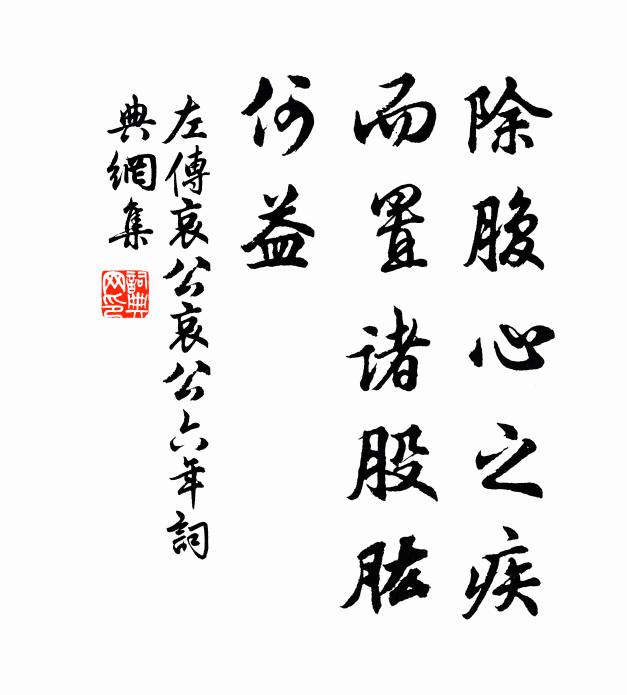 除腹心之疾
而置諸股肱
何益
左傳哀公哀公六年詞
典網集
詞典
网印